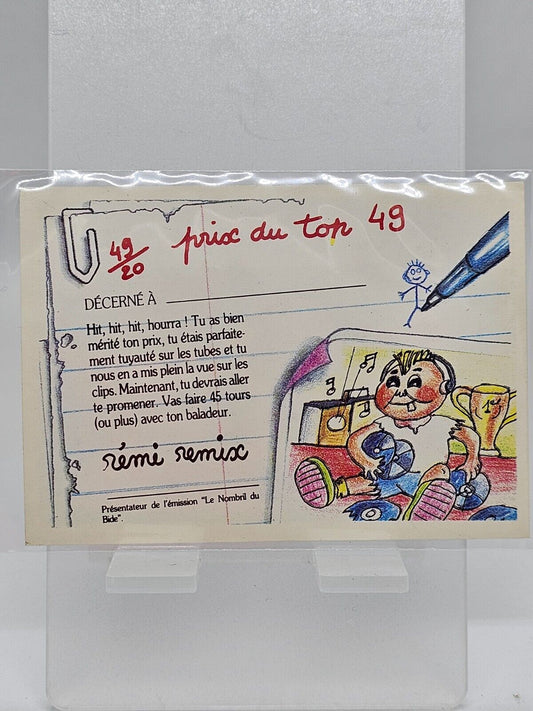 49/20
prix du top 49
DÉCERNÉ À
Hit, hit, hit, hourra ! Tu as bien
mérité ton prix, tu étais parfaite-
ment tuyauté sur les tubes et tu
nous en a mis plein la vue sur les
clips. Maintenant, tu devrais aller
te promener. Vas faire 45 tours
(ou plus) avec ton baladeur.
rémi remix
Présentateur de l'émission "Le Nombril du
Bide".
1er